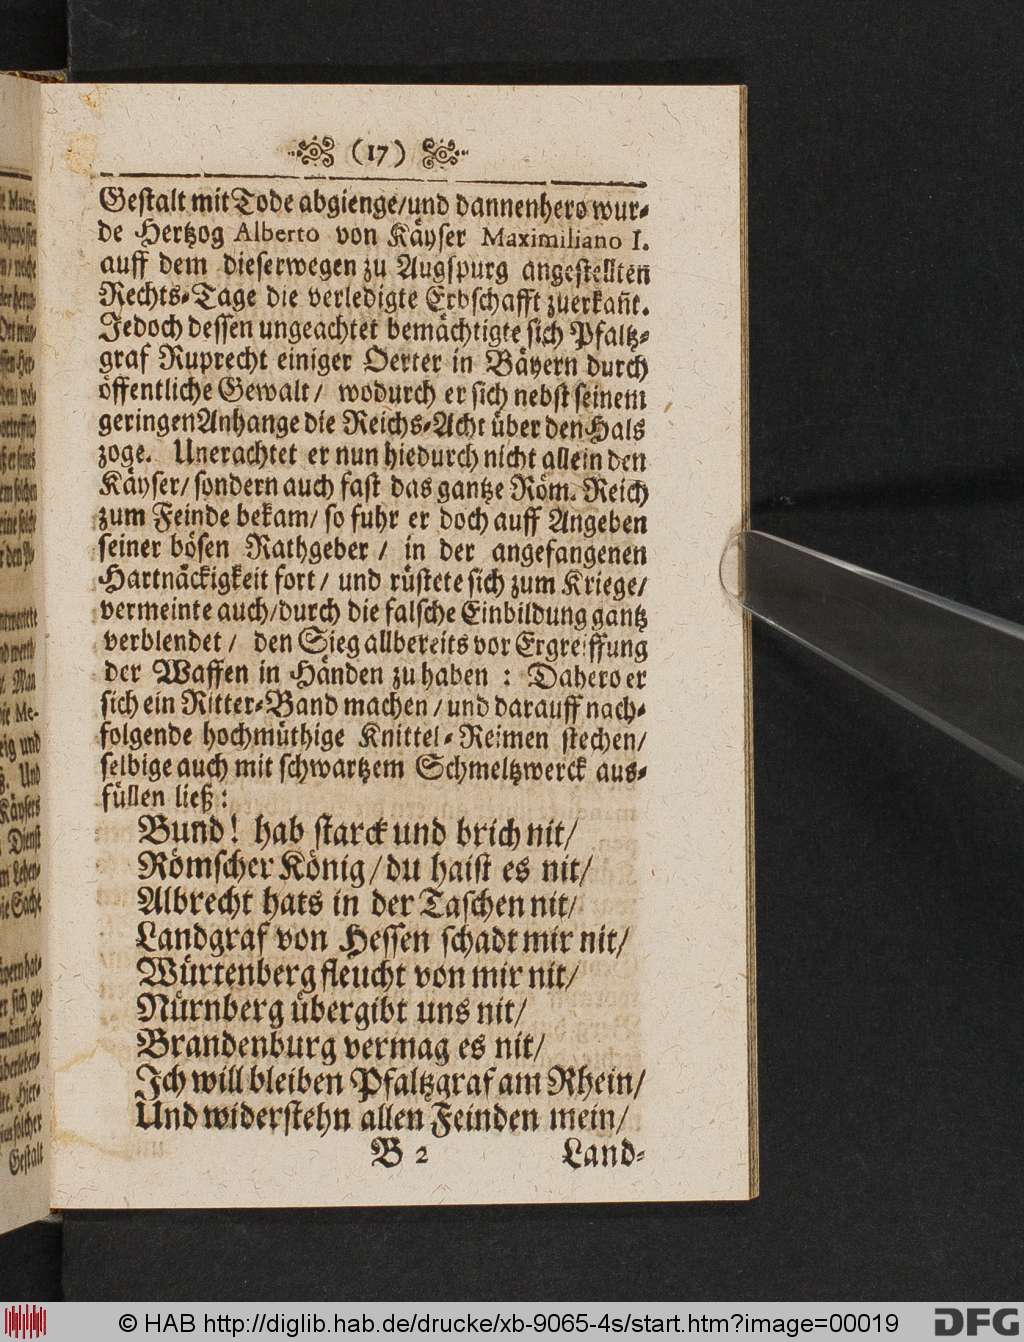 (17)
Gestalt mit Tode abgienge/und dannenhero wur⸗
de Hertzog Alberto von Käyser Maximiliano I.
auff dem dieserwegen zu Augspurg angestellten
Rechts⸗Tage die verledigte Erbschafft zuerkañt.
Jedoch dessen ungeachtet bemächtigte sich Pfaltz⸗
graf Ruprecht einiger Oerter in Bäyern durch
öffentliche Gewalt/ wodurch er sich nebst seinem
geringen Anhange die Reichs⸗Acht über den Hals
zoge. Unerachtet er nun hiedurch nicht allein den
Käyser/ sondern auch fast das gantze Röm. Reich
zum Feinde bekam/ so fuhr er doch auff Angeben
seiner bösen Rathgeber / in der angefangenen
Hartnäckigkeit fort/ und rüstete sich zum Kriege/
vermeinte auch/durch die falsche Einbildung gantz
verblendet / den Sieg allbereits vor Ergreiffung
der Waffen in Händen zu haben : Dahero er
sich ein Ritter⸗Band machen / und darauff nach⸗
folgende hochmüthige Knittel⸗Reimen stechen/
selbige auch mit schwartzem Schmeltzwerck aus⸗
füllen ließ:
Bund! hab starck und brich nit/
Römscher König/du haist es nit/
Albrecht hats in der Taschen nit/
Landgraf von Hessen schadt mir nit/
Würtenberg fleucht von mir nit/
Nürnberg übergibt uns nit/
Brandenburg vermag es nit/
Ich will bleiben Pfaltzgraf am Rhein/
Und widerstehn allen Feinden mein/
B 2 Land⸗
© HAB http://diglib.hab.de/drucke/xb-9065-4s/start.htm?image=00019
DFG